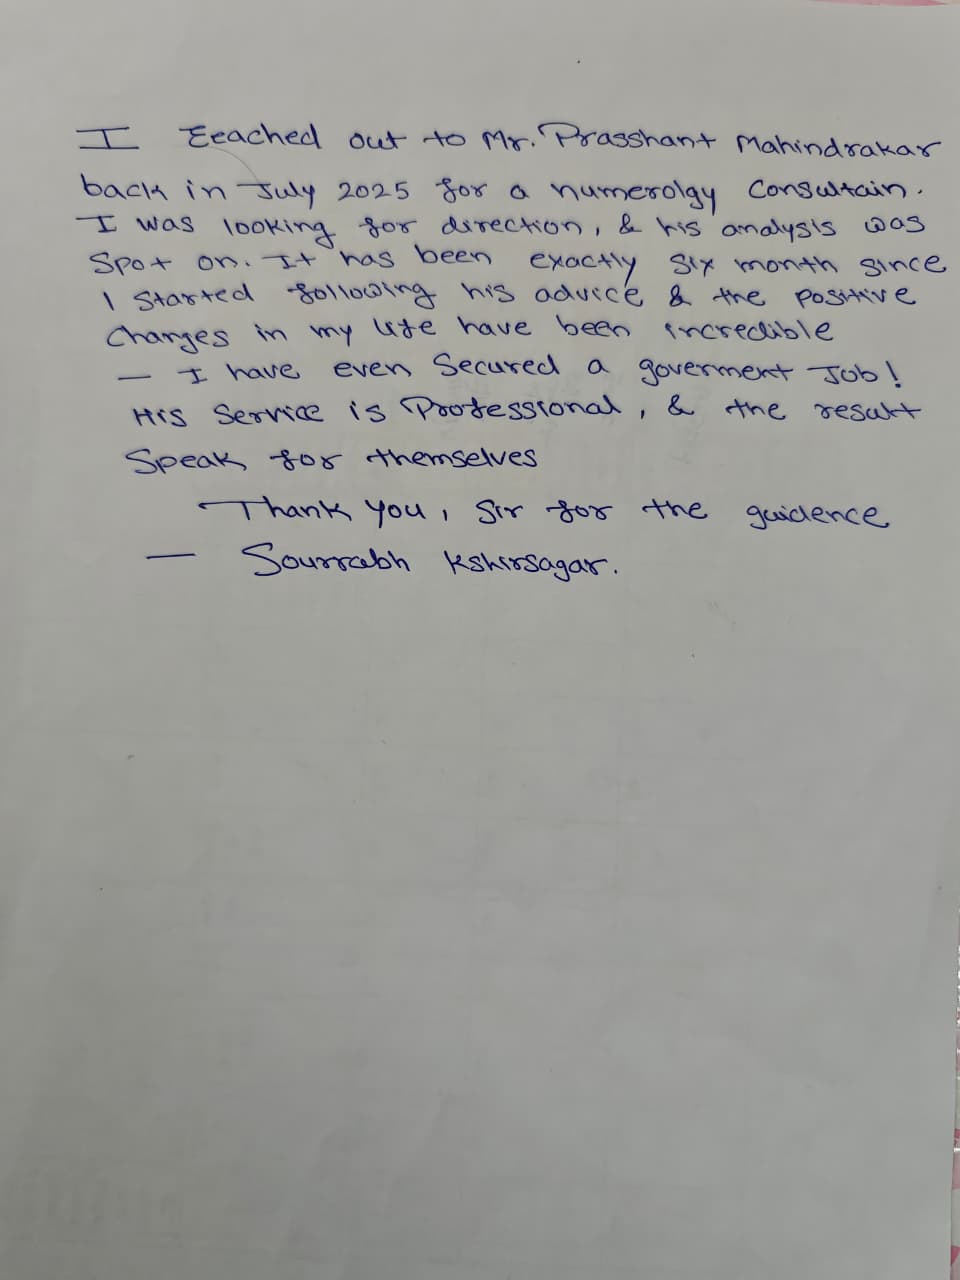 I Eeached out to Mr. Prasshant Mahindrakar
back in July 2025 for a numerolgy Consultain.
I was looking for direction, & his analysis was
Spot on. It has been exactly six month since
I Started following his advice & the positive
Charges in my life have been incredible
— I have even Secured a goverment Job!
His Service is Professional, & the result
Speak for themselves
Thank you, Sir for the guidence
— Sourrabh Kshirsagar.